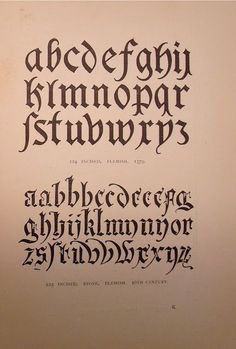 abcdefghij
klmnopqr
ſstuvwxyz
124 INCISED, FLEMISH, 1579.
aabbbccdeeefg
ghhijklmnyor
zsſtuvvwxxyz
125 INCISED; STONE, FLEMISH 16TH CENTURY.